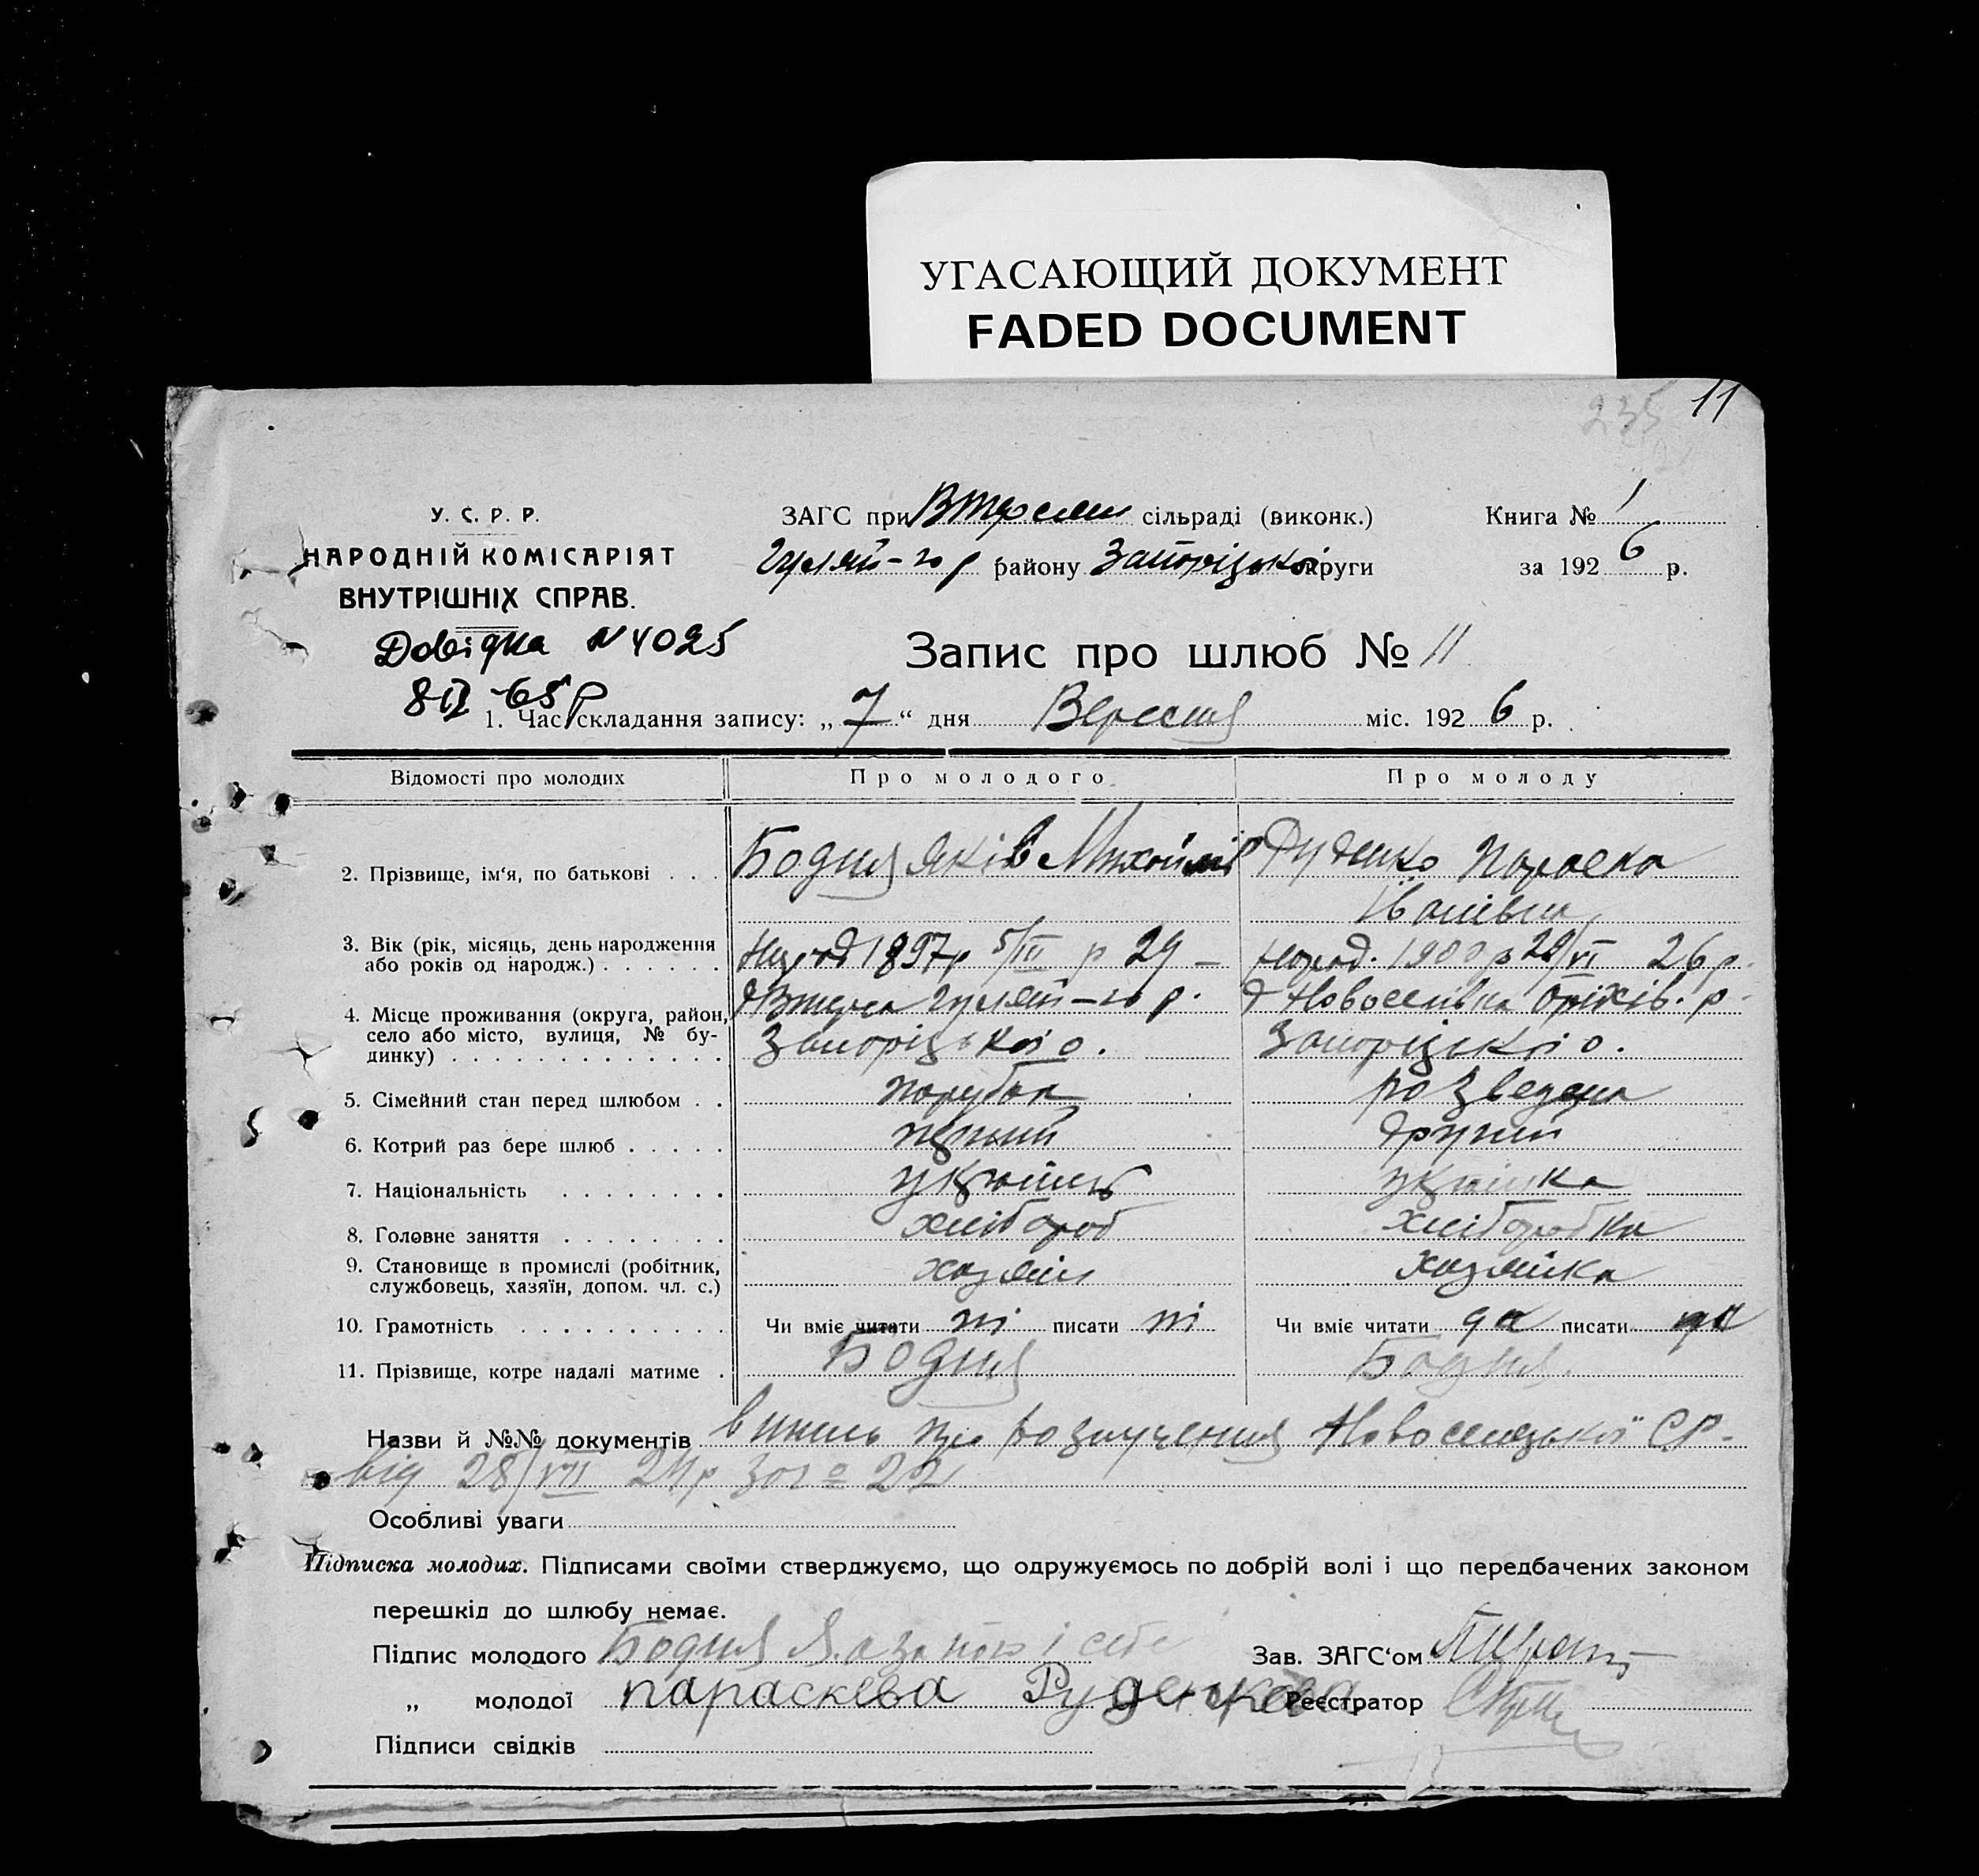 УГАСАЮЩИЙ ДОКУМЕНТ
FADED DOCUMENT
235 11
У. С. Р. Р.
НАРОДНІЙ КОМІСАРІЯТ
ВНУТРІШНІХ СПРАВ.
ЗАГС при сільраді (виконк.)
Гуляй-го р району Запоріцької округи
Книга № 1
за 1926 р.
Довідка N 4025
65 р
Запис про шлюб № 11
1. Час складання запису: „7“ дня Вересня міс. 1926 р.
Відомості про молодих
Про молодого
Про молоду
2. Прізвище, ім‘я, по батькові . . .
Бодня Яків Михайлів
Руденко Параска
Іванівна
3. Вік (рік, місяць, день народження
або років од народж.) . . . . . .
народ 1897р 5/III р 29 –
народ. 1900 р 28/VI 26 р.
4. Місце проживання (округа, район,
село або місто, вулиця, № бу-
динку) . . . . . . . . . . . . .
Гуляй-го р.
Запоріцької о.
Новоселівка Оріхів. р.
Запоріцької о.
5. Сімейний стан перед шлюбом . .
парубок
розведена
6. Котрий раз бере шлюб . . . . .
перший
другий
7. Національність . . . . . . . .
українець
українка
8. Головне заняття . . . . . . . .
хлібороб
хліборобка
9. Становище в промислі (робітник,
службовець, хазяїн, допом. чл. с.)
хазяїн
хазяйка
10. Грамотність . . . . . . . . . .
Чи вміє читати ні писати ні
Чи вміє читати да писати да
11. Прізвище, котре надалі матиме .
Бодня
Бодня.
Назви й №№ документів випись про розлучення Новоселицької СР.
від 28/VII 24р за № 22
Особливі уваги
Підписка молодих. Підписами своїми стверджуємо, що одружуємось по добрій волі і що передбачених законом
перешкід до шлюбу немає.
Підпис молодого Бодня Я. а за
Зав. ЗАГС‘ом
„ молодої параскева Руденкова
Реєстратор
Підписи свідків